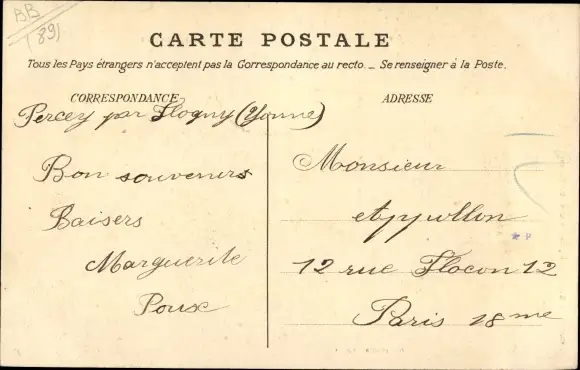 BB
(89)
CARTE POSTALE
Tous les Pays étrangers n'acceptent pas la Correspondance au recto. _ Se renseigner à la Poste.
CORRESPONDANCE
Percey par Flogny (Yonne)
Bon souvenirs
Baisers
Marguerite
Poux
ADRESSE
Monsieur
12 rue Flocon 12
Paris 18me